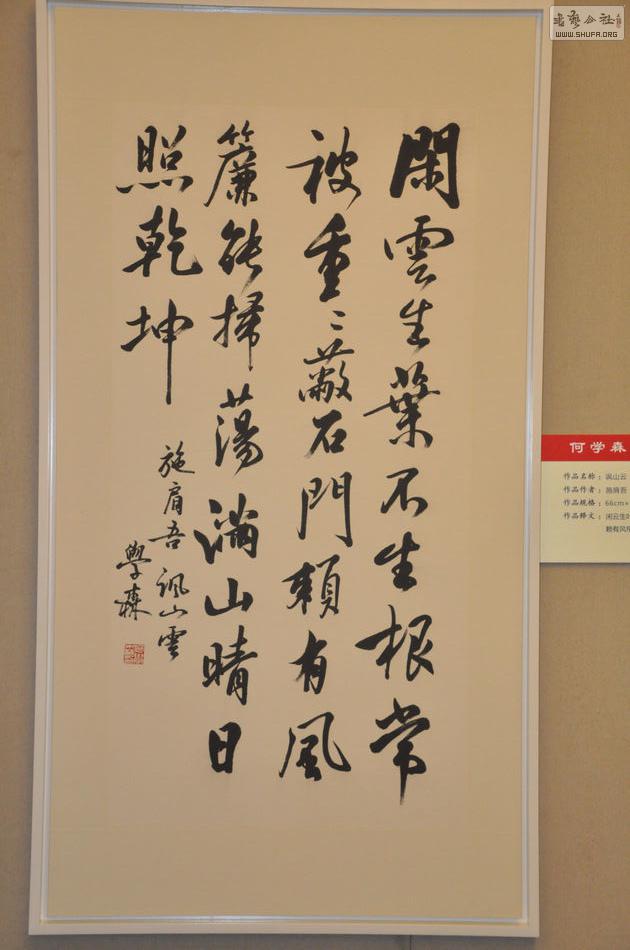 閑雲生葉不生根常
被重〻蔽石門頼有風
簾能掃蕩满山晴日
照乾坤
施肩吾諷山雲
學森
何学森
作品名称：讽山云
作品作者：施肩吾
作品规格：66cm×
作品释文：闲云生叶
赖有风帘
WWW.SHUFA.ORG